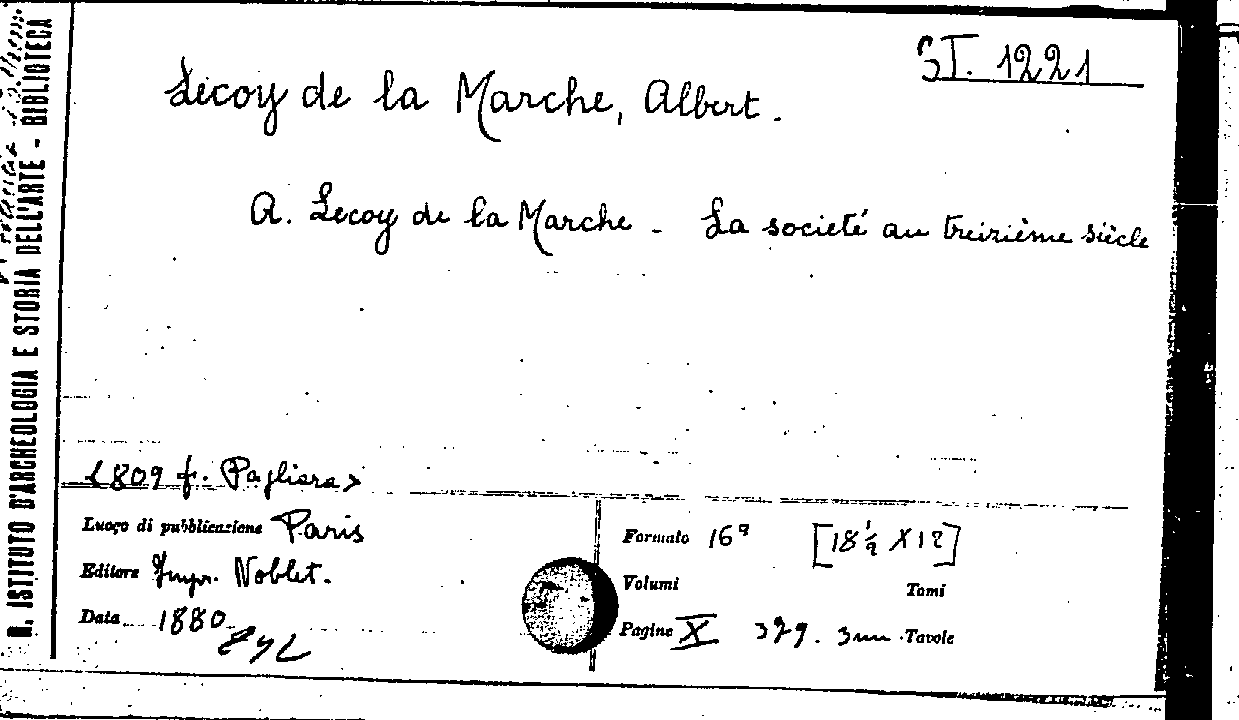 ST. 1221
Lecoy de la Marche, Albert.
A. Lecoy de la Marche - La societé au treizième siècle
1809 f. Pagliara
Luogo di pubblicazione Paris
Editore Impr. Noblet.
Data 1880
Formato 16º [18 ½ X 12]
Volumi Tomi
Pagine X 379. 3 nn. Tavole
R. ISTITUTO D'ARCHEOLOGIA E STORIA DELL'ARTE - BIBLIOTECA